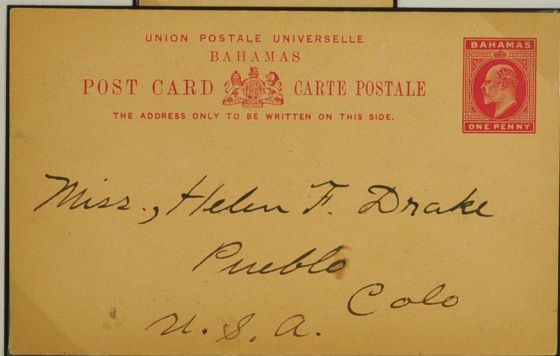 UNION POSTALE UNIVERSELLE
BAHAMAS
POST CARD CARTE POSTALE
THE ADDRESS ONLY TO BE WRITTEN ON THIS SIDE.
BAHAMAS
ONE PENNY
Miss., Helen F. Drake
Pueblo
Colo
U. S. A.